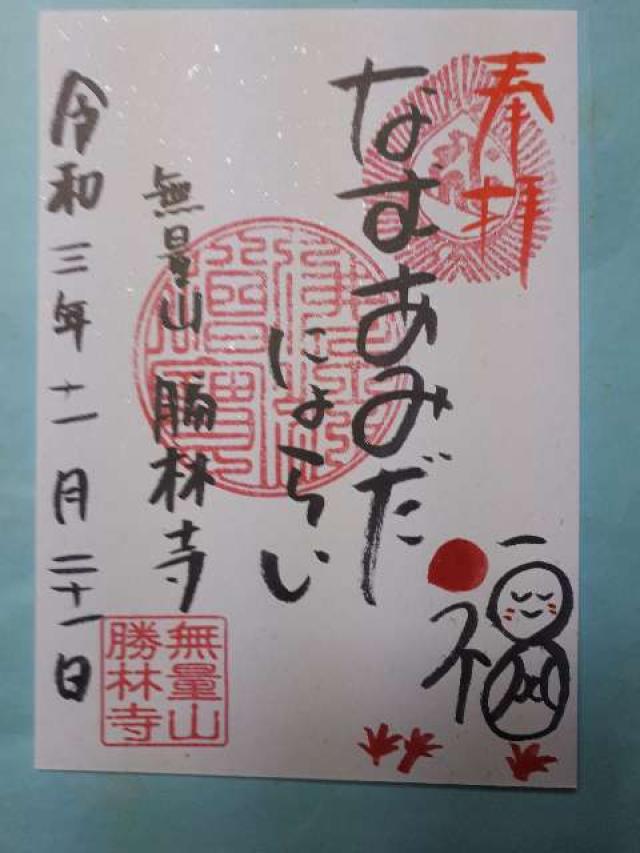 奉拝
なむあみだ
にょらい
無量山 勝林寺
令和三年十一月二十一日
無量山
勝林寺
福